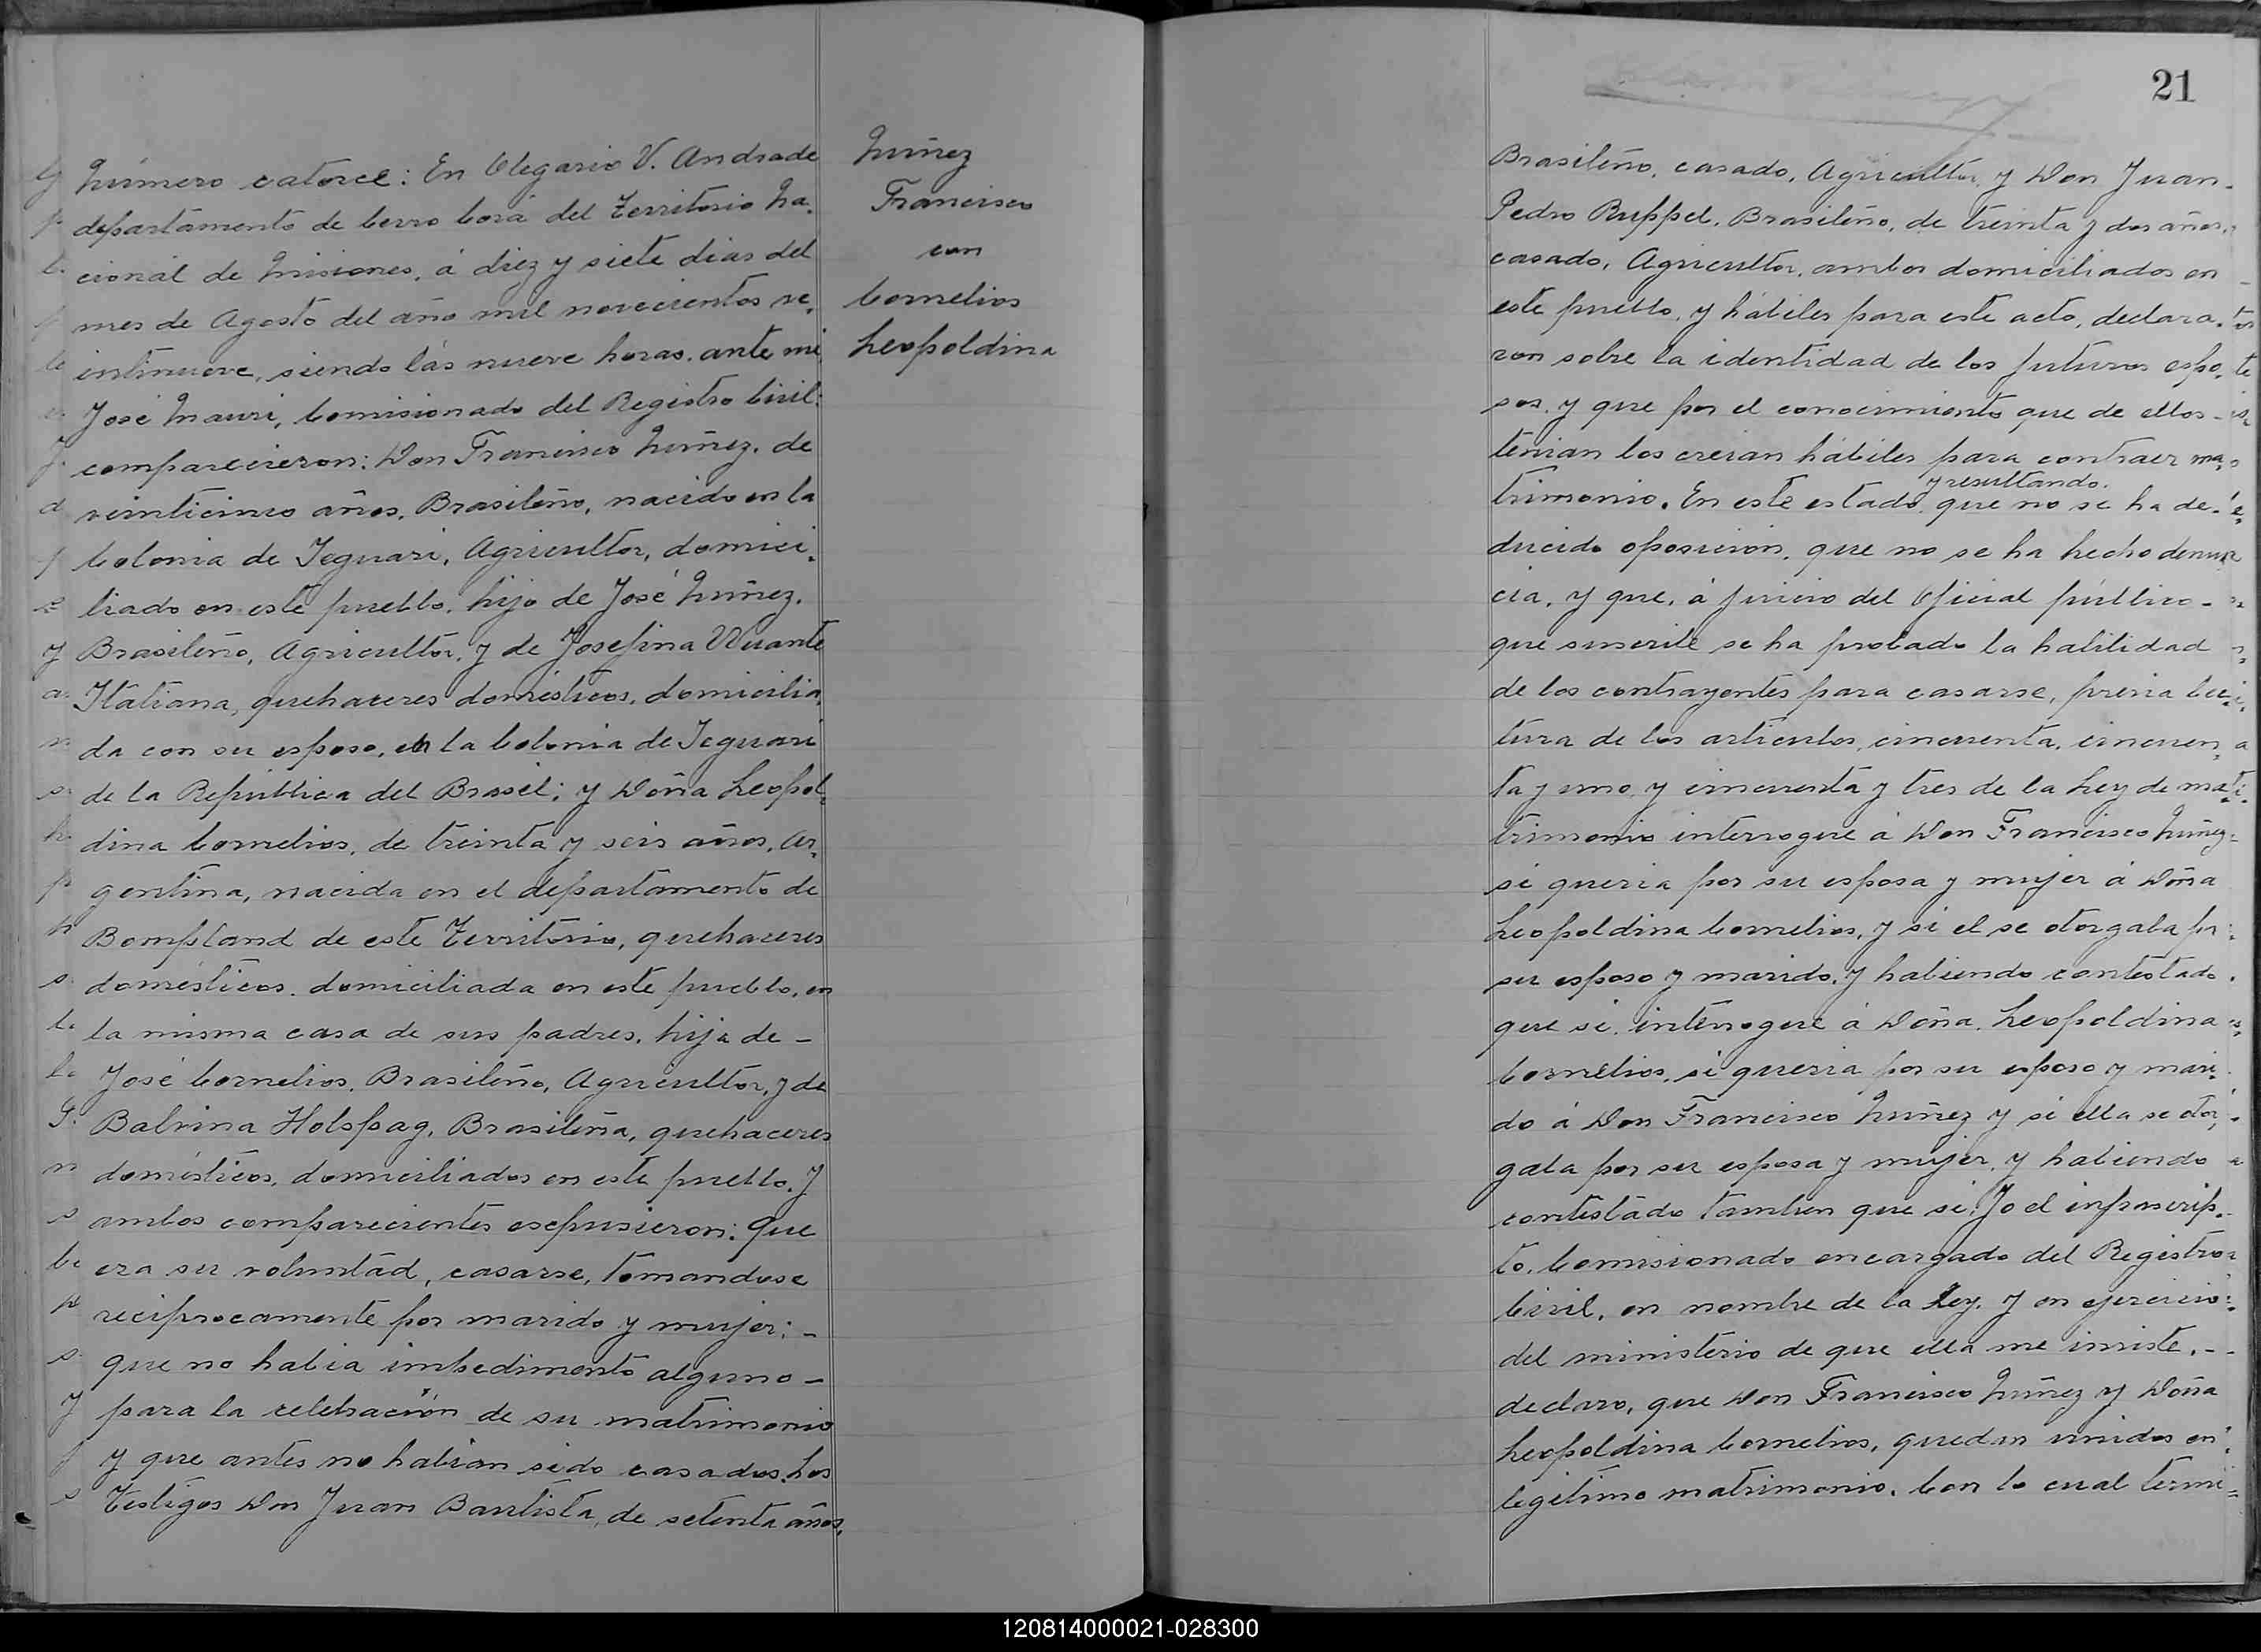 Número catorce: En Olegario V. Andrade
departamento de Cerro Corá del Territorio Na-
cional de Misiones, á diez y siete dias del
mes de Agosto del año mil novecientos ve-
intinueve, siendo las nueve horas. ante mi
José Mauri, Comisionado del Registro Civil:
comparecieron: Don Francisco Núñez, de
veinticinco años, Brasileño, nacido en la
Colonia de Jeguari, Agricultor, domici-
liado en este pueblo, hijo de José Núñez,
Brasileño, Agricultor, y de Josefina
Italiana, quehaceres domésticos, domicilia-
da con su esposo, en la Colonia de Jeguari
de la República del Brasil; y Doña Leopol-
dina Cornelios, de treinta y seis años, Ar-
gentina, nacida en el departamento de
Bompland de este Territorio, quehaceres
domésticos, domiciliada en este pueblo, en
la misma casa de sus padres, hija de -
José Cornelios, Brasileño, Agricultor, y de
Balvina Holspag, Brasileña, quehaceres
domésticos, domiciliados en este pueblo. Y
ambos comparecientes escpusieron: Que
era su voluntad, casarse, tomandose
reciprocamente por marido y mujer; -
que no habia impedimento alguno -
para la celebración de su matrimonio
y que antes no habian sido casados. Los
Testigos Don Juan Bautista, de setenta años,
Núñez
Francisco
con
Cornelios
Leopoldina
21
Brasileño, casado, Agricultor, y Don Juan
Pedro Ruppel, Brasileño, de treinta y dos años,
casado, Agricultor, ambos domiciliados en
este pueblo, y hábiles para este acto, declara-
ron sobre la identidad de los futuros espo-
sos, y que por el conocimiento que de ellos -
tenian los creian hábiles para contraer ma-
y resultando.
trimonio. En este estado, que no se ha de-
ducido oposicion, que no se ha hecho denun
cia, y que, á juicio del Oficial público -
que suscribe se ha probado la habilidad
de los contrayentes para casarse, previa lec-
tura de los articulos, cincuenta, cincuen-
ta y uno, y cincuenta y tres de la Ley de ma-
trimonio interrogué á Don Francisco Núñez
si queria por su esposa y mujer á Doña
Leopoldina Cornelios, y si el se otorgaba por
su esposo y marido, y habiendo contestado
que si, interrogué á Doña Leopoldina
Cornelios, si queria por su esposo y mari-
do á Don Francisco Núñez y si ella se otor-
gaba por su esposa y mujer, y habiendo
contestado tambien que si, Yo el infrascrip-
to, Comisionado encargado del Registro
Civil, en nombre de la Ley, y en ejercicio
del ministerio de que ella me inviste, -
declaro, que Don Francisco Núñez y Doña
Leopoldina Cornelios, quedan unidos en
legitimo matrimonio. Con lo cual termi-
120814000021-028300